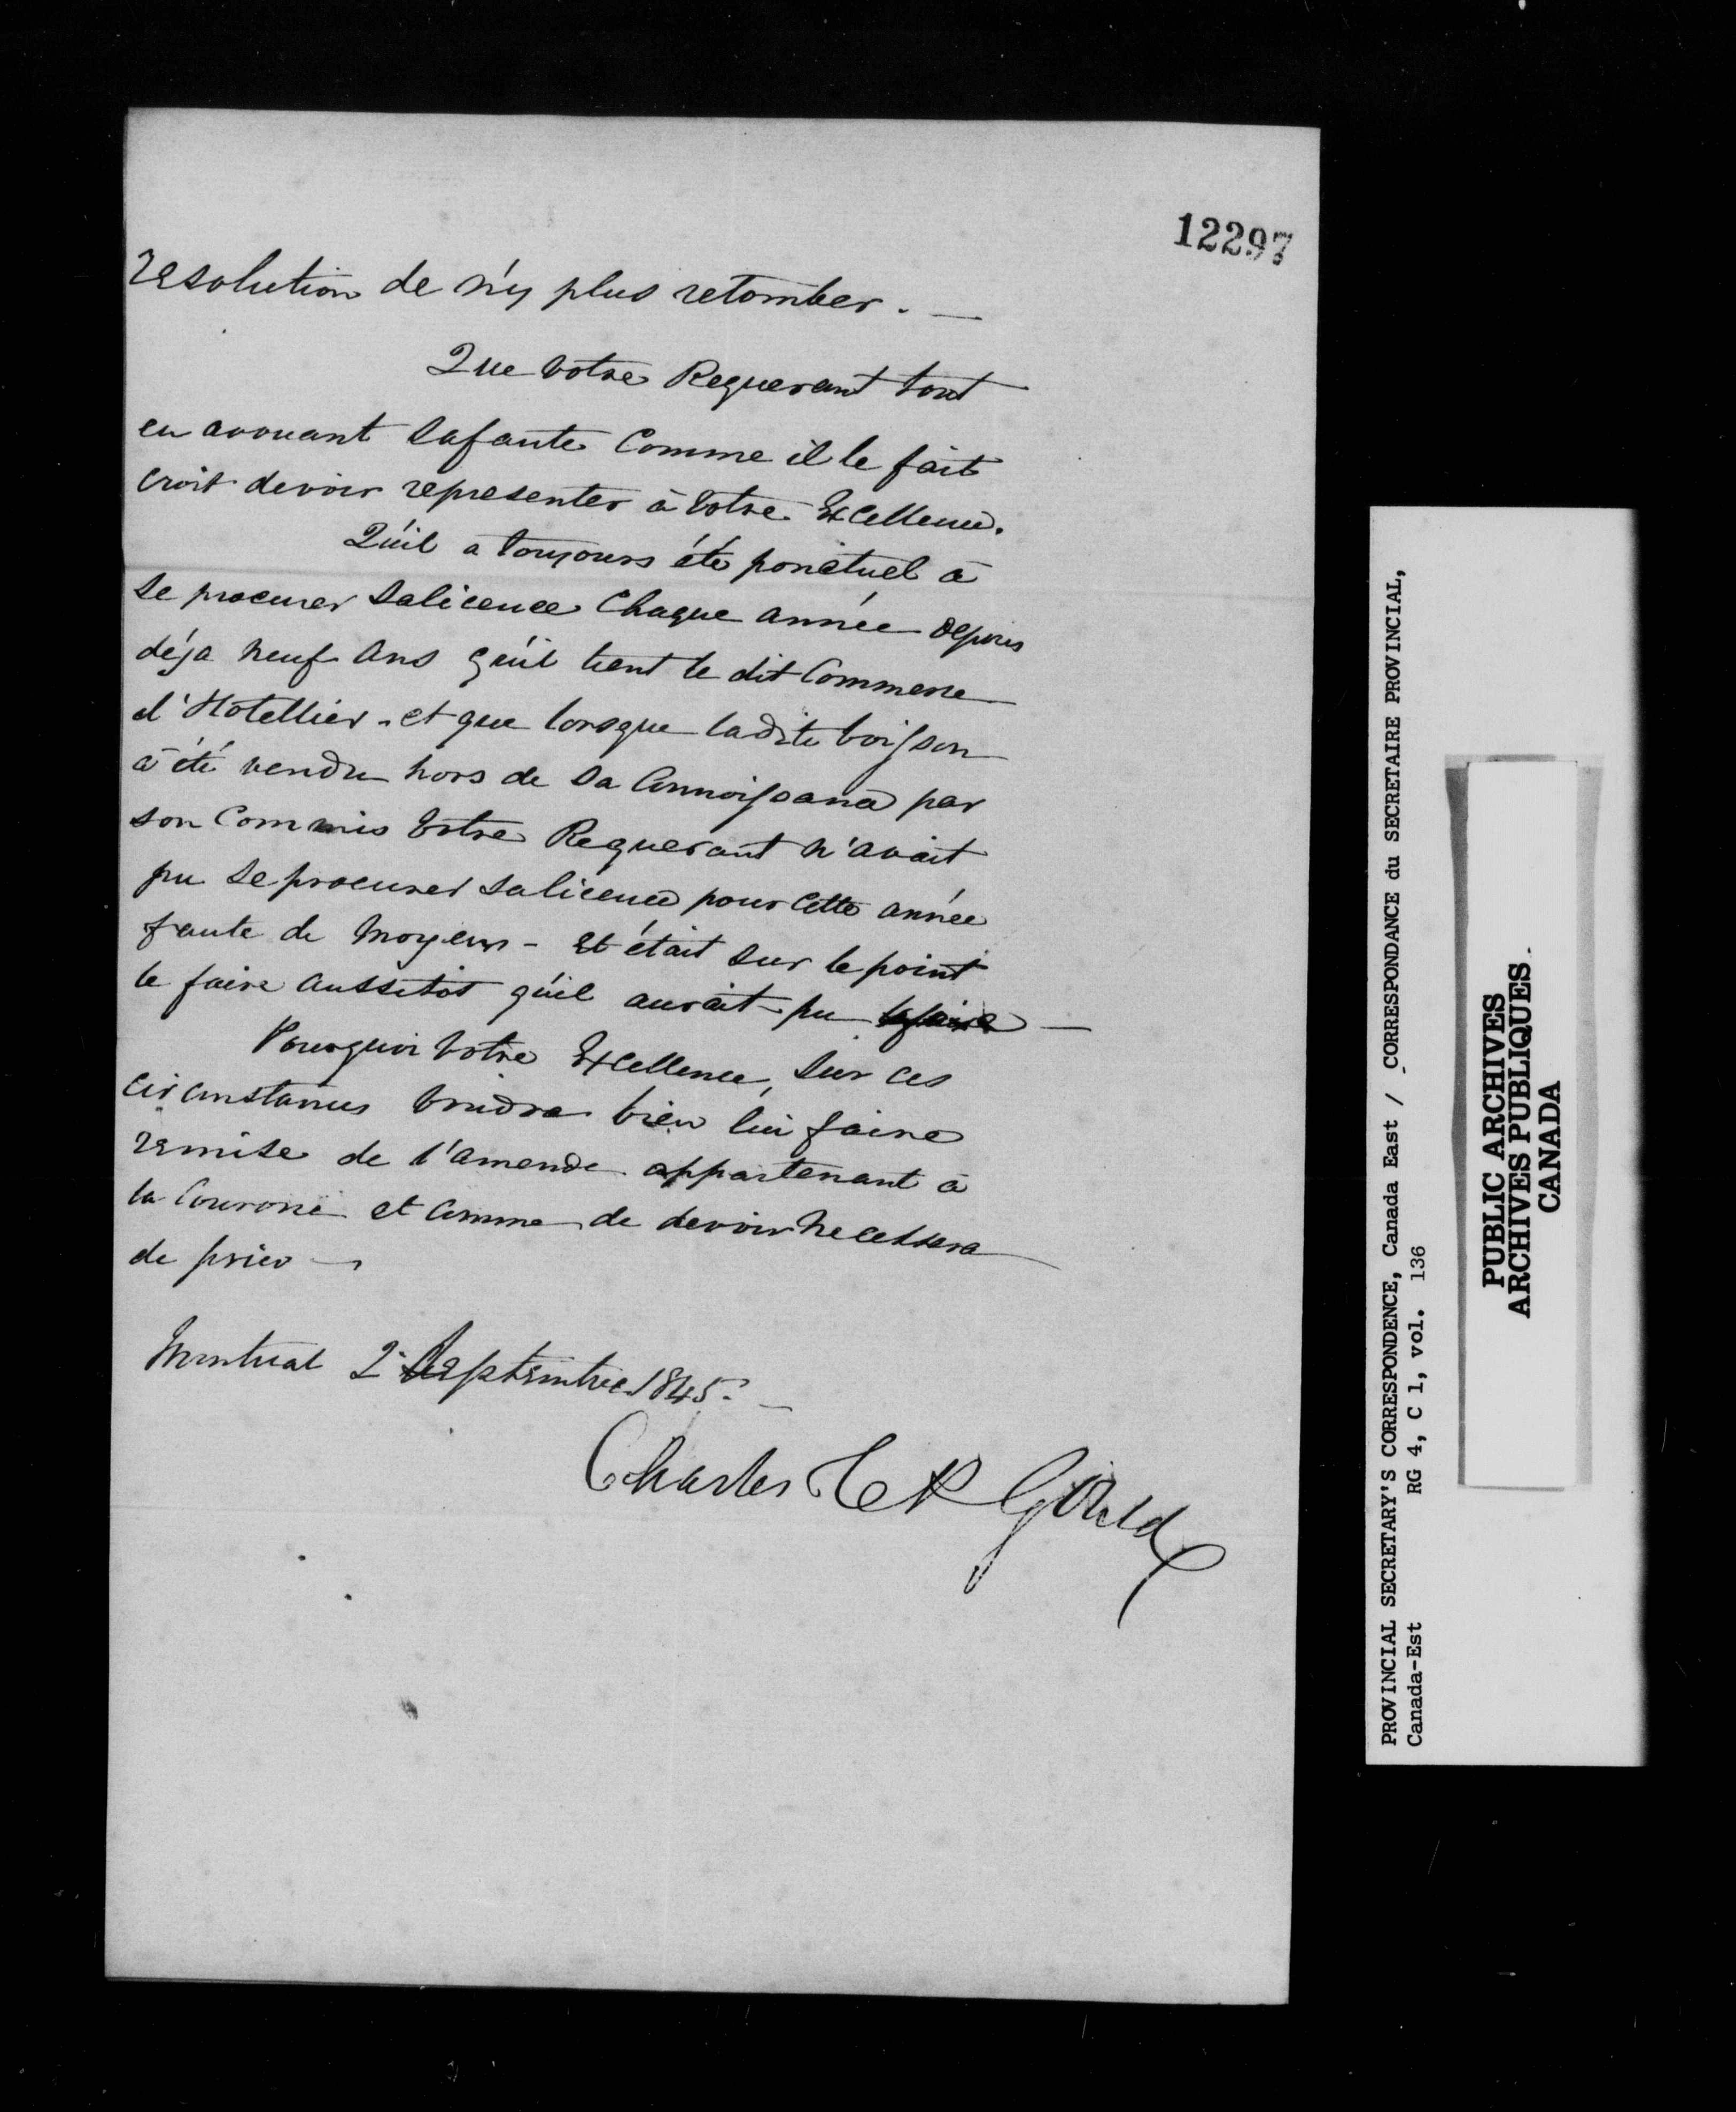 12297
resolution de n'y plus retomber. —
Que votre Requerant tout
en avouant safaute Comme il le fait
croit devoir representer à Votre Excellence.
Qu'il a toujours été ponctuel à
se procurer salicence Chaque année depuis
déja neuf ans qu'il tient le dit Commerce
d'Hotellier - et que lorsque ladite boisson
a été vendu hors de sa Connoissance par
son Commis Votre Requerant n'avait
pu se procurer salicence pour cette année
faute de moyens - et était sur le point
le faire aussitot qu'il aurait pu le faire —
Pourquoi Votre Excellence, sur ces
circonstances voudra bien lui faire
remise de l'amende appartenant à
la Couronne et comme de devoir ne cessera
de prier —
Montreal 2 Septembre 1845. —
Charles Gould
PROVINCIAL SECRETARY'S CORRESPONDENCE, Canada East / CORRESPONDANCE du SECRETAIRE PROVINCIAL,
Canada-Est RG 4, C 1, vol. 136
PUBLIC ARCHIVES
ARCHIVES PUBLIQUES
CANADA